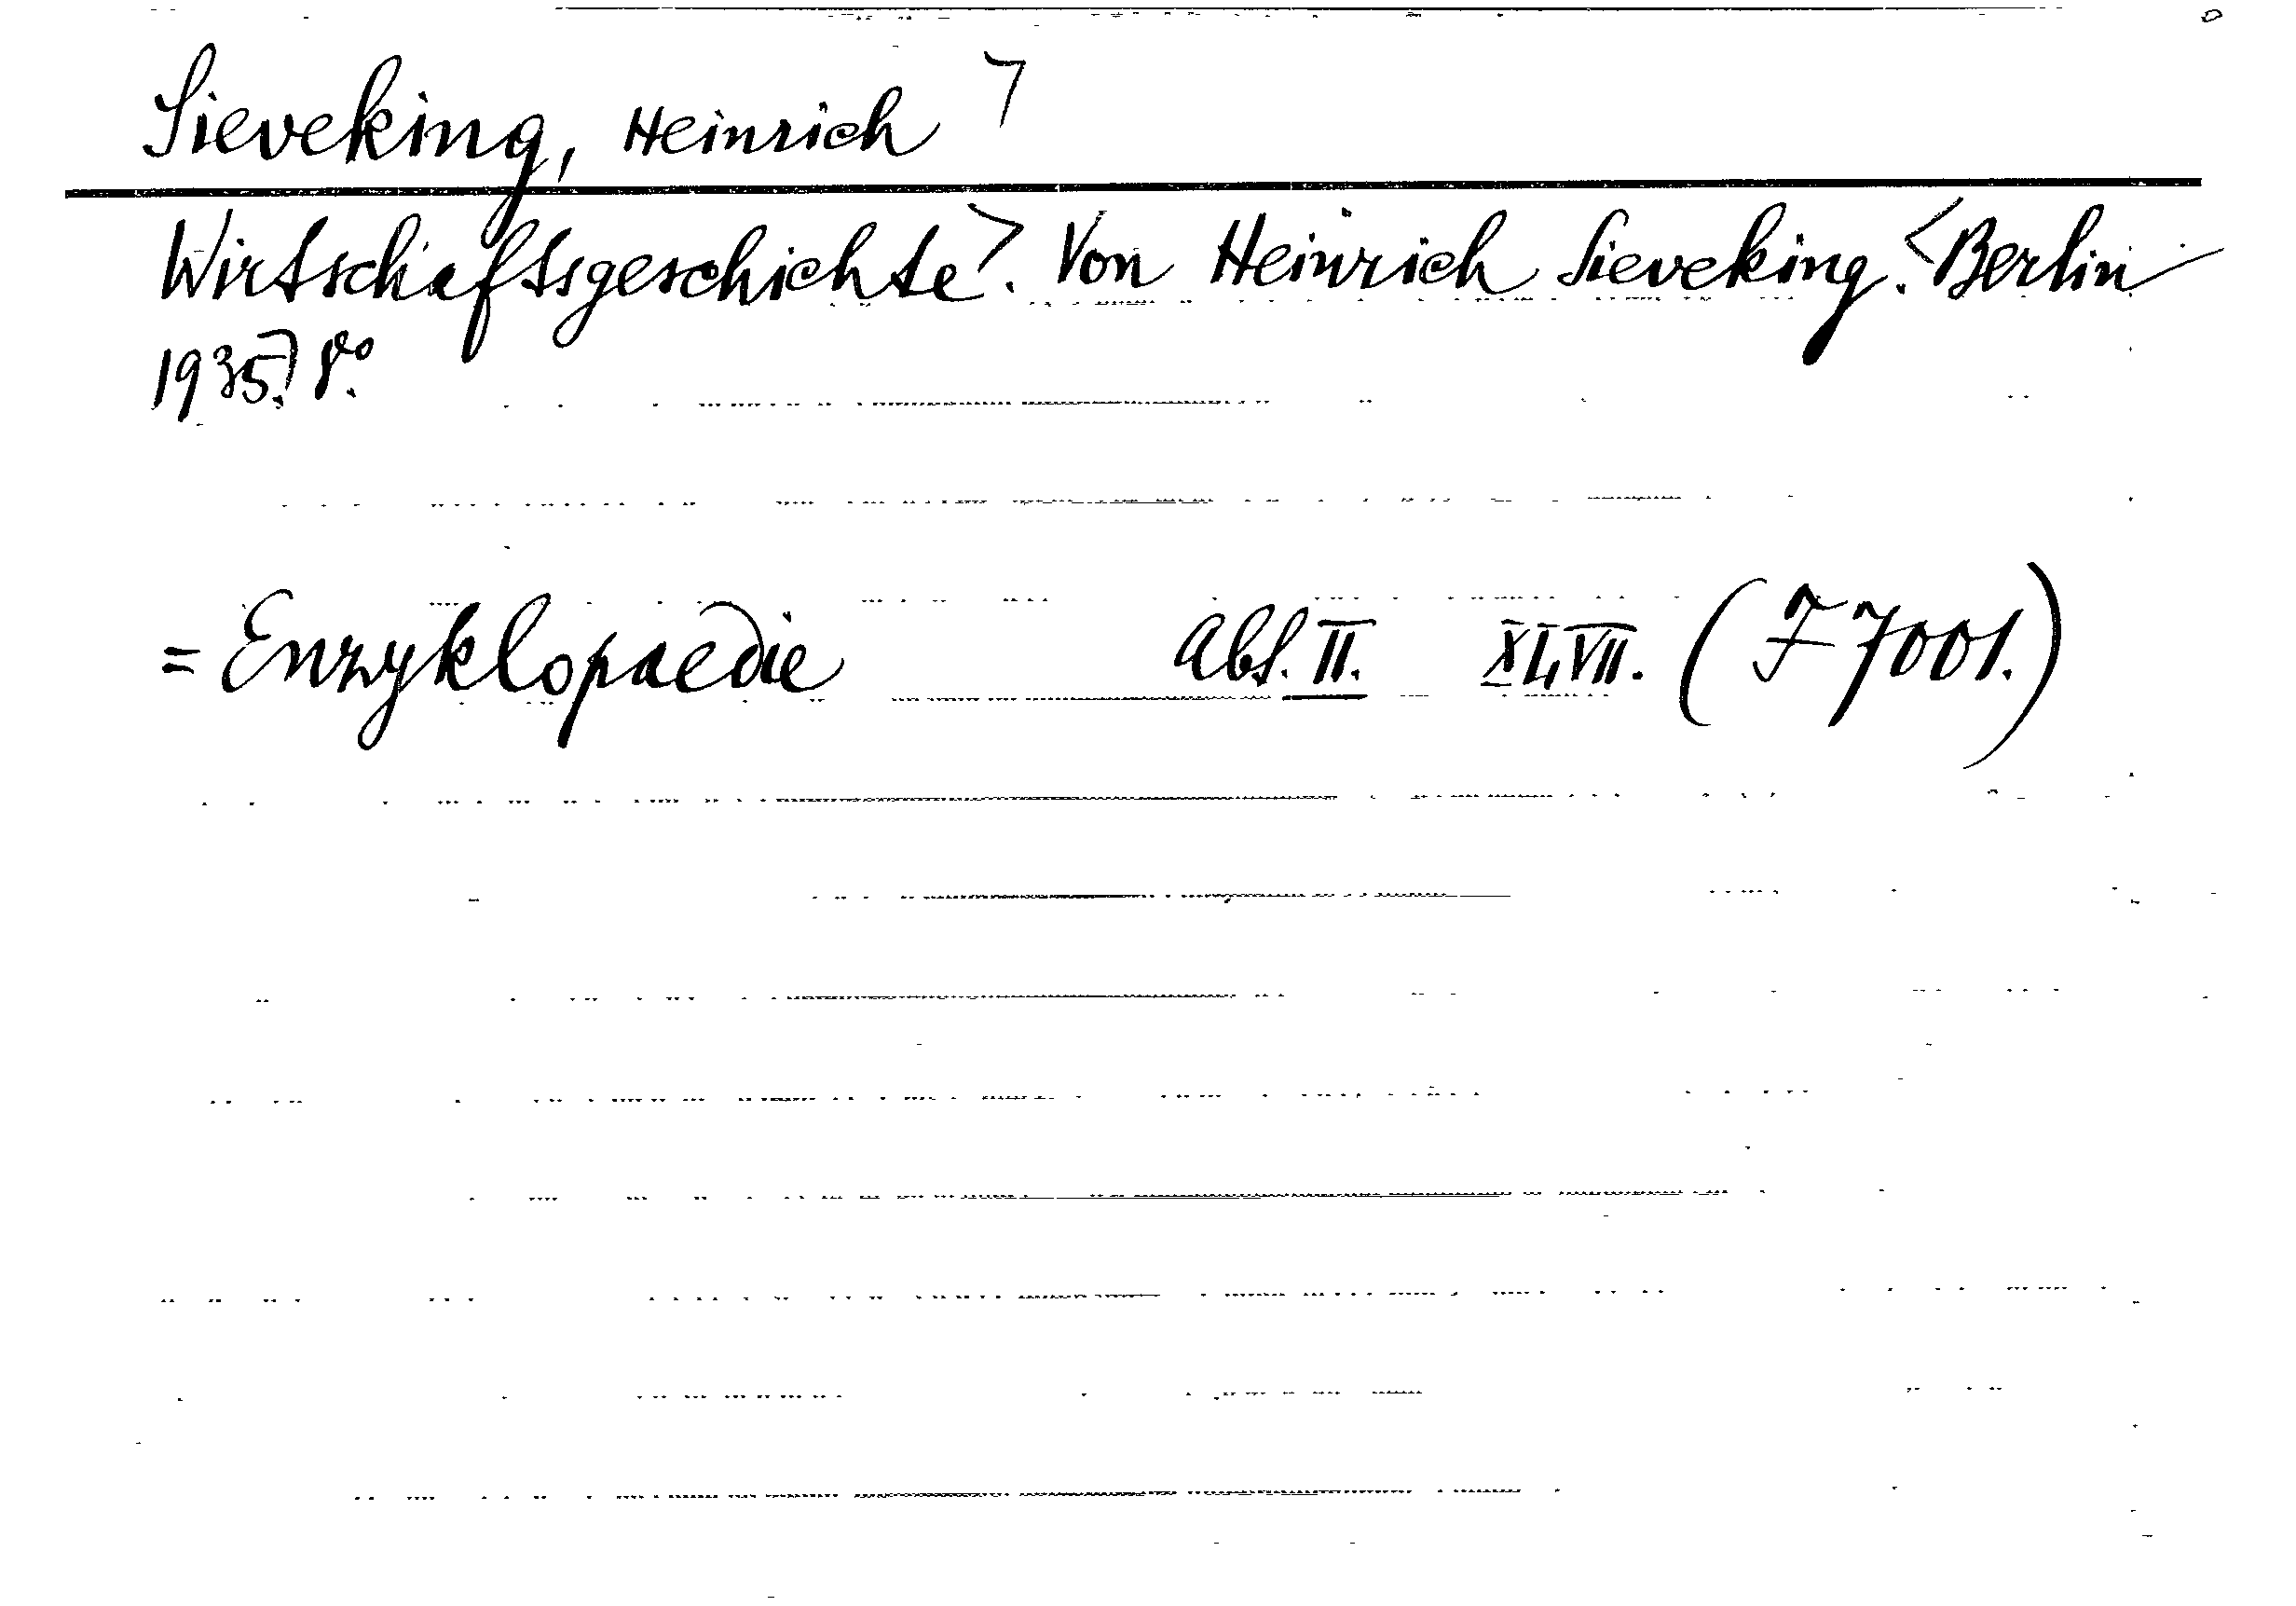 Sieveking, Heinrich
Wirtschaftsgeschichte. Von Heinrich Sieveking. Berlin
1935. 8°.
= Enzyklopaedie Abt. II. XLVII. (F 7001.)